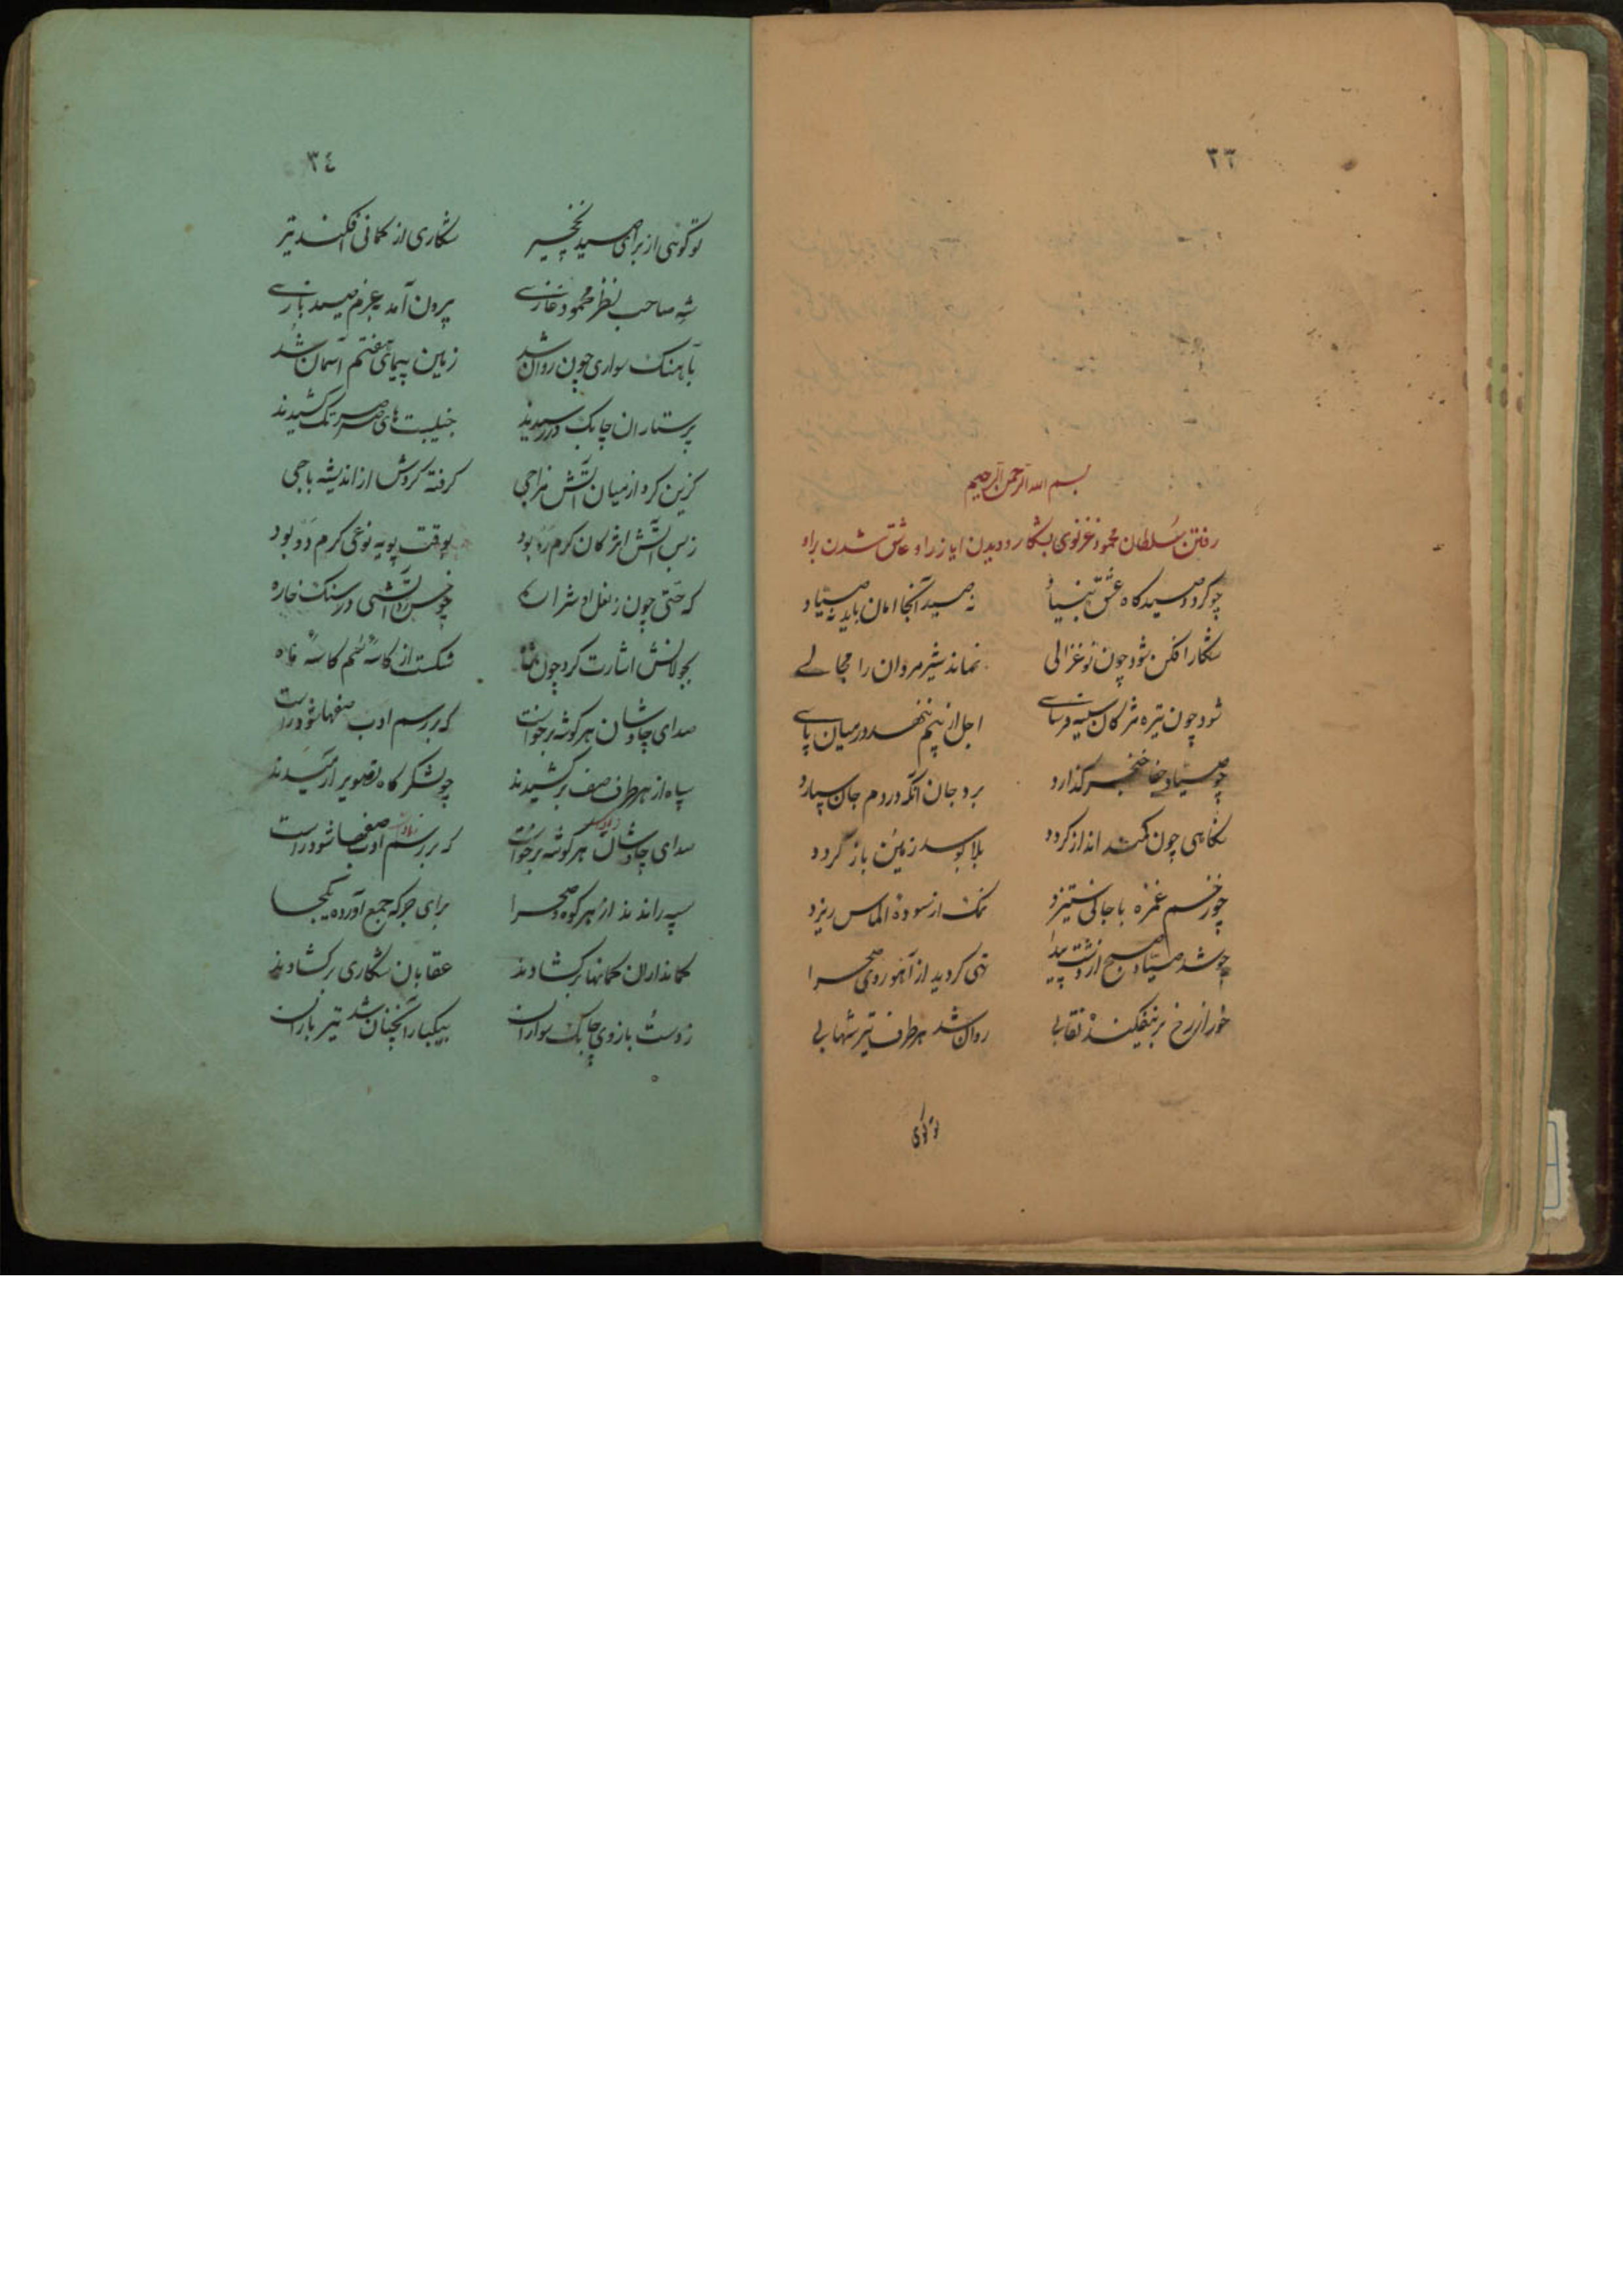 ٣٣
بسم الله الرحمن الرحیم
رفتن سلطان محمود غزنوی بشکار و دیدن ایاز را و عاشق شدن براو
چو کردد صیدکاه عشق بنیاد نه صید آنجا امان یابد نه صیاد
شکار افکن شود چون نو غزالی نماند شیر مردان را مجالے
شود چون تیره مژکان سینه فرساے اجل از بیم ننهد در میان پاے
چو صیاد جفا خنجر کذارد برد جان آنکه در دم جان سپارد
نکاهی چون کمند انداز کردد بلا بوسد زمین باز کردد
چو زخم غمزه با جانی ستیزد نمک از سودهٔ الماس ریزد
چو شد صیاد صبح از دشت پیدا تهی کردید از آهو روی صحرا
خور از رخ بر نیفکنده نقابی روان شد هر طرف تیر شهابی
تو کوئی
٣٤
تو کوئی از برای صید نخچیر شکاری از کمانی افکند تیر
شه صاحب نظر محمود غازے برون آمد بعزم صید بازے
بآهنک سواری چون روان شد زمین پیمای هفتم آسمان شد
پرستاران چابک در رسیدند جنیبت های صرصر تک کشیدند
کزین کرد از میان آتش مزاجی کرفته کردش از اندیشه باجی
زبس آتش اثر کان کرم رو بود بوقت پویه نوعی کرم دو بود
که جستی چون ز نعل او شراره چو خس زد آتشی در سنک خاره
بجولانش اشارت کرد چون شاه شکست از کاسهٔ سم کاسهٔ ماه
صدای چاوشان هر کوشه برخواست که بر رسم ادب صفها شود راست
سپاه از هر طرف صف برکشیدند چو لشکر کاه تصویر آرمیدند
صدای چاوشان هر کوشه برخواست که بر رسم ادب صفها شود راست
سپه راندند از هر کوه و صحرا برای جرکه جمع آورده یکجا
کمانداران کمانها برکشادند عقابان شکاری برکشادند
ز دست بازوی چابک سواران بیکبار آنچنان شد تیر باران